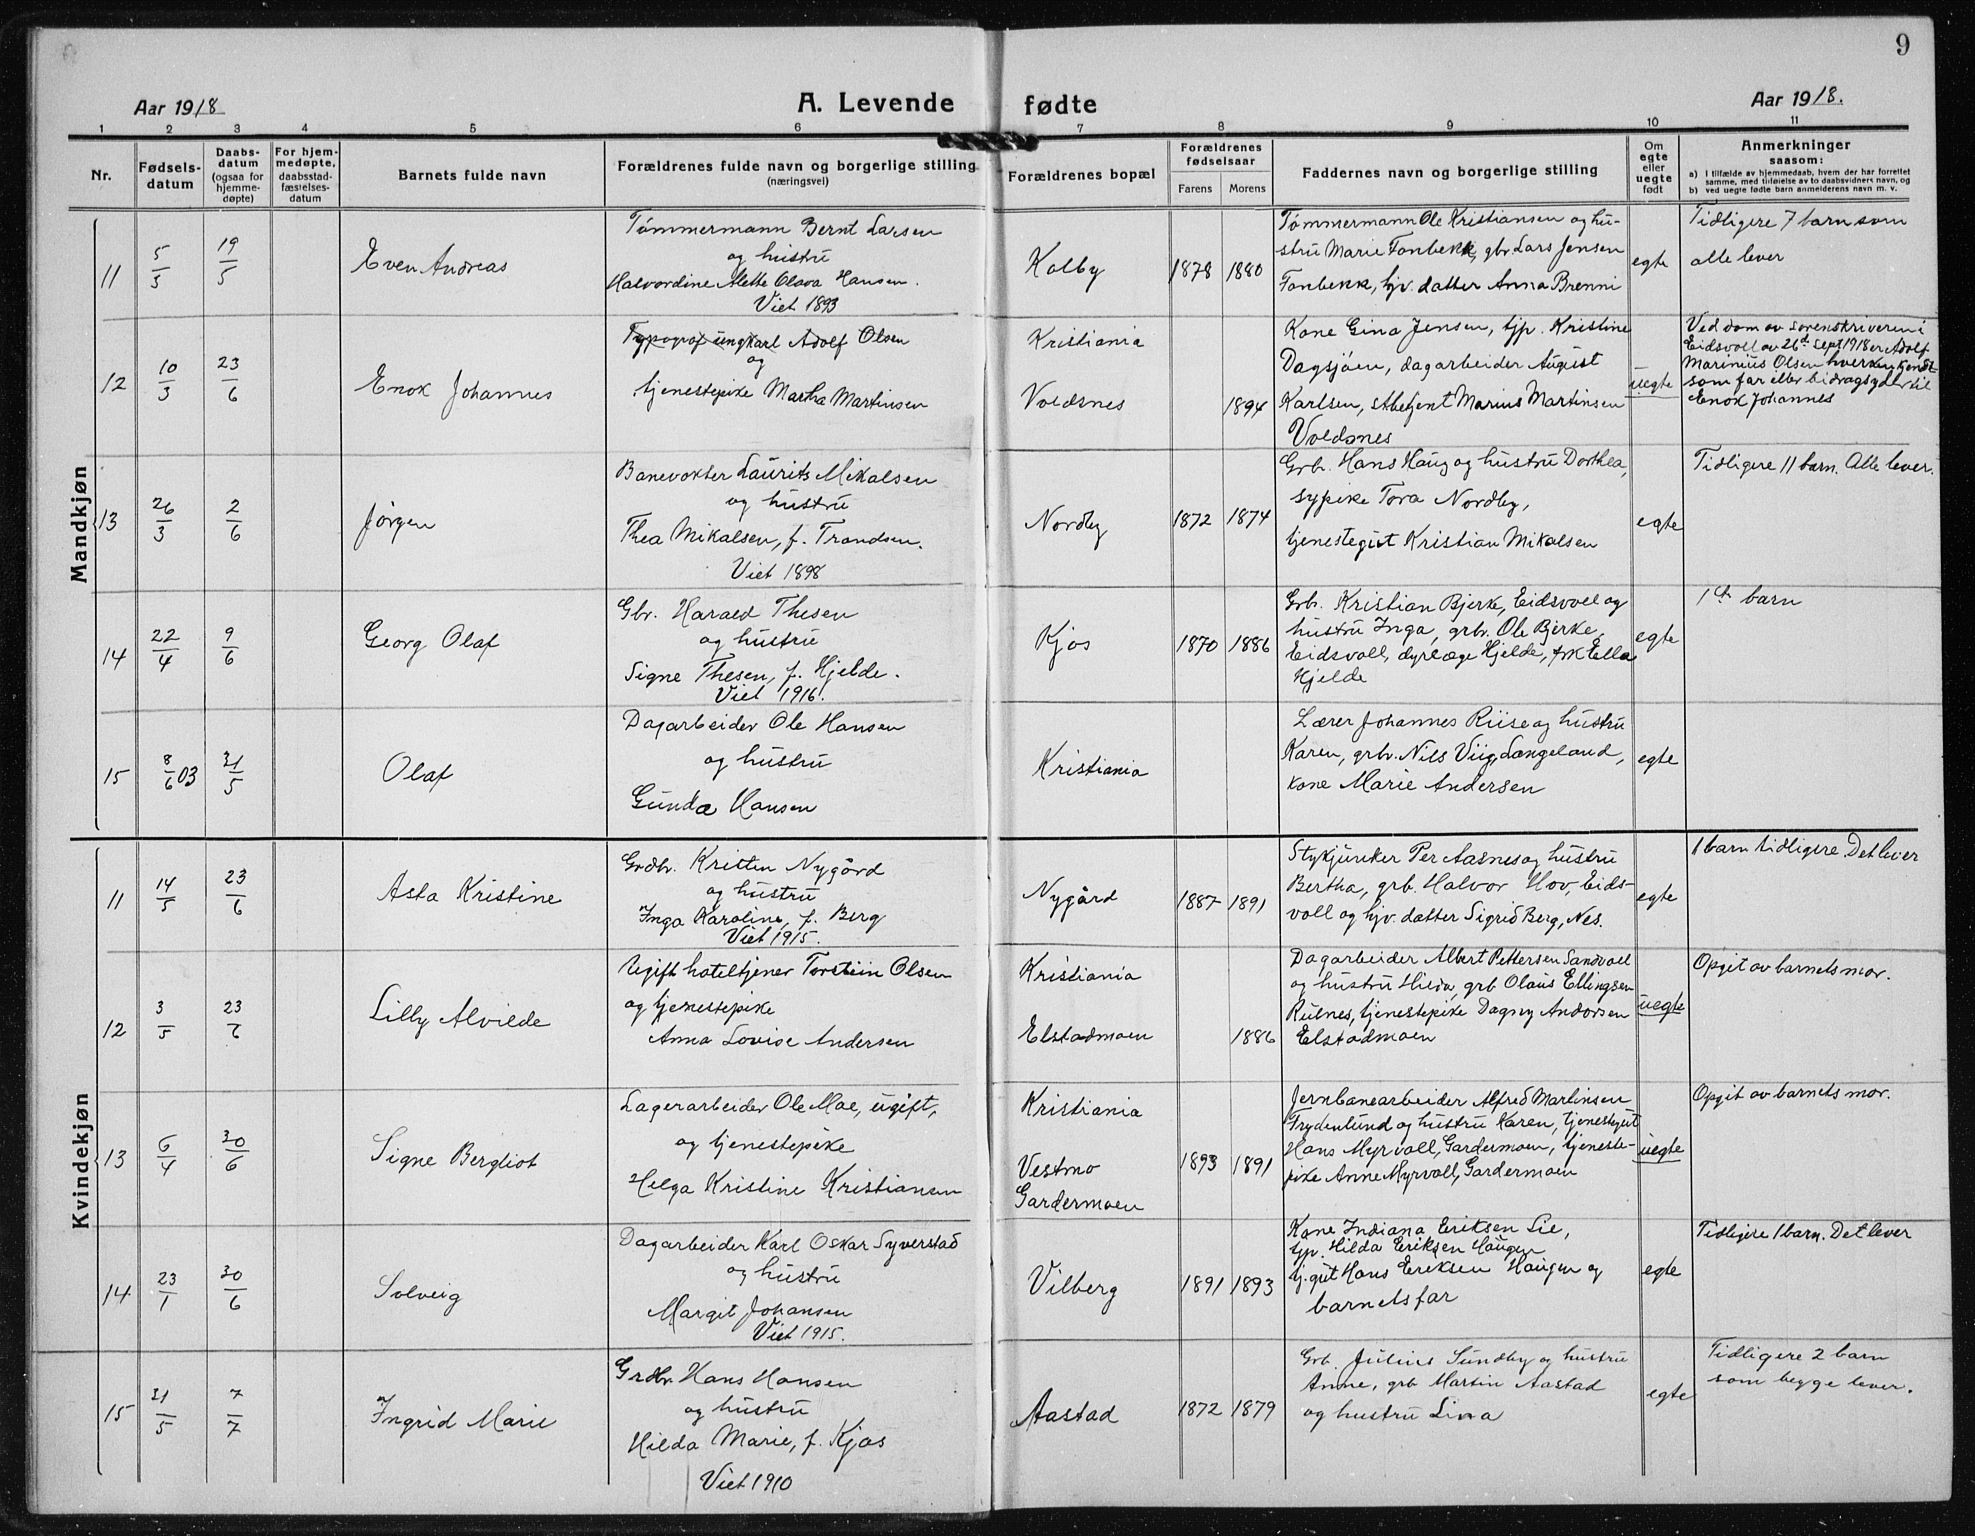 9
Aar 1918
A. Levende fødte
Aar 1918.
1 2 3 4 5 6 7 8 9 10 11
Nr.
Fødsels-
datum
Daabs-
datum
(ogsaa for
hjemme-
døpte)
For hjem-
medøpte,
daabsstad-
fæstelses-
datum
Barnets fulde navn
Forældrenes fulde navn og borgerlige stilling
(næringsvei)
Forældrenes bopæl
Forældrenes
fødselsaar
Farens Morens
Faddernes navn og borgerlige stilling
Om
egte
eller
uegte
født
Anmerkninger
saasom:
a) I tilfælde av hjemmedaab, hvem der har forrettet
samme, med tilføielse av to daabsvidners navn, og
b) ved uegte fødte barn anmelderens navn m. v.
Mandkjøn
11
5/5
19/5
Even Andreas
Tømmermann Bernt Larsen
og hustru
Halvordine Alette Olava Hansen.
Viet 1893
Kolby
1878 1880
Tømmermann Ole Kristiansen og hu-
stru Marie Fonbekk, gbr. Lars Jensen
Fonbekk, hjv. datter Anna Brenni
egte
Tidligere 7 barn som
alle lever
12
10/3
23/6
Enok Johannes
Typograf ungkarl Adolf Olsen
og
tjenestepike Martha Martinsen
Kristiania
Voldsnes
1894
Kone Gina Jensen, tjp. Kristine
Dagsjøen, dagarbeider August
Karlsen, stbetjent Marius Martinsen
Voldsnes
uegte
Ved dom av sorenskriveren i
Eidsvoll av 26de Sept 1918 er Adolf
Marinius Olsen hverken kjendt
som far eller bidragsgder til
Enok Johannes
13
26/3
2/6
Jørgen
Banevokter Laurits Mikalsen
og hustru
Thea Mikalsen, f. Trondsen.
Viet 1898
Nordby
1872 1874
Grb. Hans Haug og hustru Dorthea,
sypike Tora Nordby,
tjenestegut Kristian Mikalsen
egte
Tidligere 11 barn. Alle lever.
14
22/4
9/6
Georg Olaf
Gbr. Harald Thesen
og hustru
Signe Thesen, f. Hjelde.
Viet 1916.
Kjos
1870 1886
Grb. Kristian Bjerke, Eidsvoll og
hustru Inga, grb. Ole Bjerke,
Eidsvoll, dyrlæge Hjelde, frk Ella
Hjelde
egte
1ste barn
15
8/6 03
31/5
Olaf
Dagarbeider Ole Hansen
og hustru
Gunda Hansen
Kristiania
Lærer Johannes Riise og hustru
Karen, grb. Nils Viig, Langeland,
kone Marie Andersen
egte
Kvindekjøn
11
14/5
23/6
Asta Kristine
Grdbr. Kristen Nygård
og hustru
Inga Karoline, f. Berg
Viet 1915.
Nygård
1887 1891
Stykjunker Per Aasnes og hustru
Bertha, grb. Halvor Hov, Eids-
voll og hjv. datter Sigrid Berg, Nes.
egte
1 barn tidligere. Det lever
12
3/5
23/6
Lilly Alvilde
Ugift hoteltjener Torstein Olsen
og tjenestepike
Anna Lovise Andersen
Kristiania
Elstadmoen
1886
Dagarbeider Albert Pettersen Sandvoll
og hustru Hilda, grb Olaus Ellingsen
Rulnes, tjenestepike Dagny Andersen
Elstadmoen
uegte
Opgit av barnets mor.
13
6/4
30/6
Signe Bergliot
Lagerarbeider Ole Moe, ugift,
og tjenestepike
Helga Kristine Kristiansen
Kristiania
Vestmo
Gardermoen
1893 1891
Jernbanearbeider Alfred Martinsen
Frydenlund og hustru Karen, tjenestegut
Hans Myrvoll, Gardermoen, tjeneste-
pike Anne Myrvoll, Gardermoen
uegte
Opgit av barnets mor.
14
23/1
30/6
Solveig
Dagarbeider Karl Oskar Syverstad
og hustru
Margit Johansen
Viet 1915.
Vilberg
1891 1893
Kone Indiana Eriksen Lie,
tjp. Hilda Eriksen Haugen
tj.gut Hans Eriksen Haugen og
barnets far
egte
Tidligere 1 barn. Det lever
15
31/5
7/7
Ingrid Marie
Grdbr. Hans Hansen
og hustru
Hilda Marie, f. Kjos
Viet 1910
Aastad
1872 1879
Grb. Julius Sundby og hustru
Anne, grb Martin Aastad
og hustru Lina
egte
Tidligere 2 barn
som begge lever.